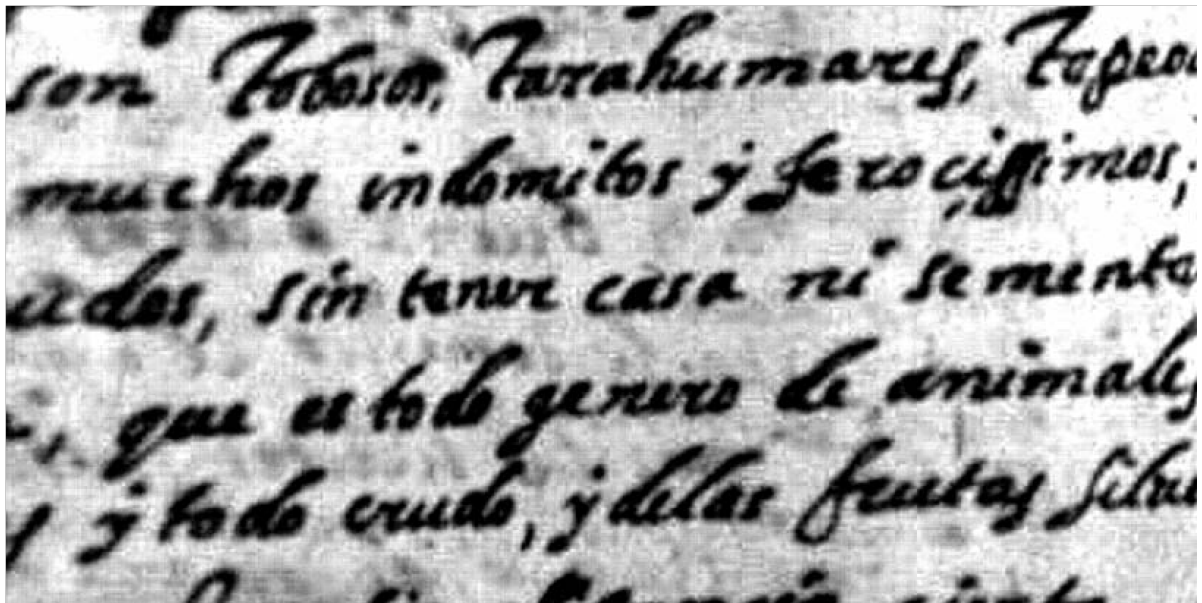 son Tobosos, Tarahumares,
muchos indomitos y feroçissimos;
sin tener casa ni
que es todo genero de animales
y todo crudo, y delas frutas